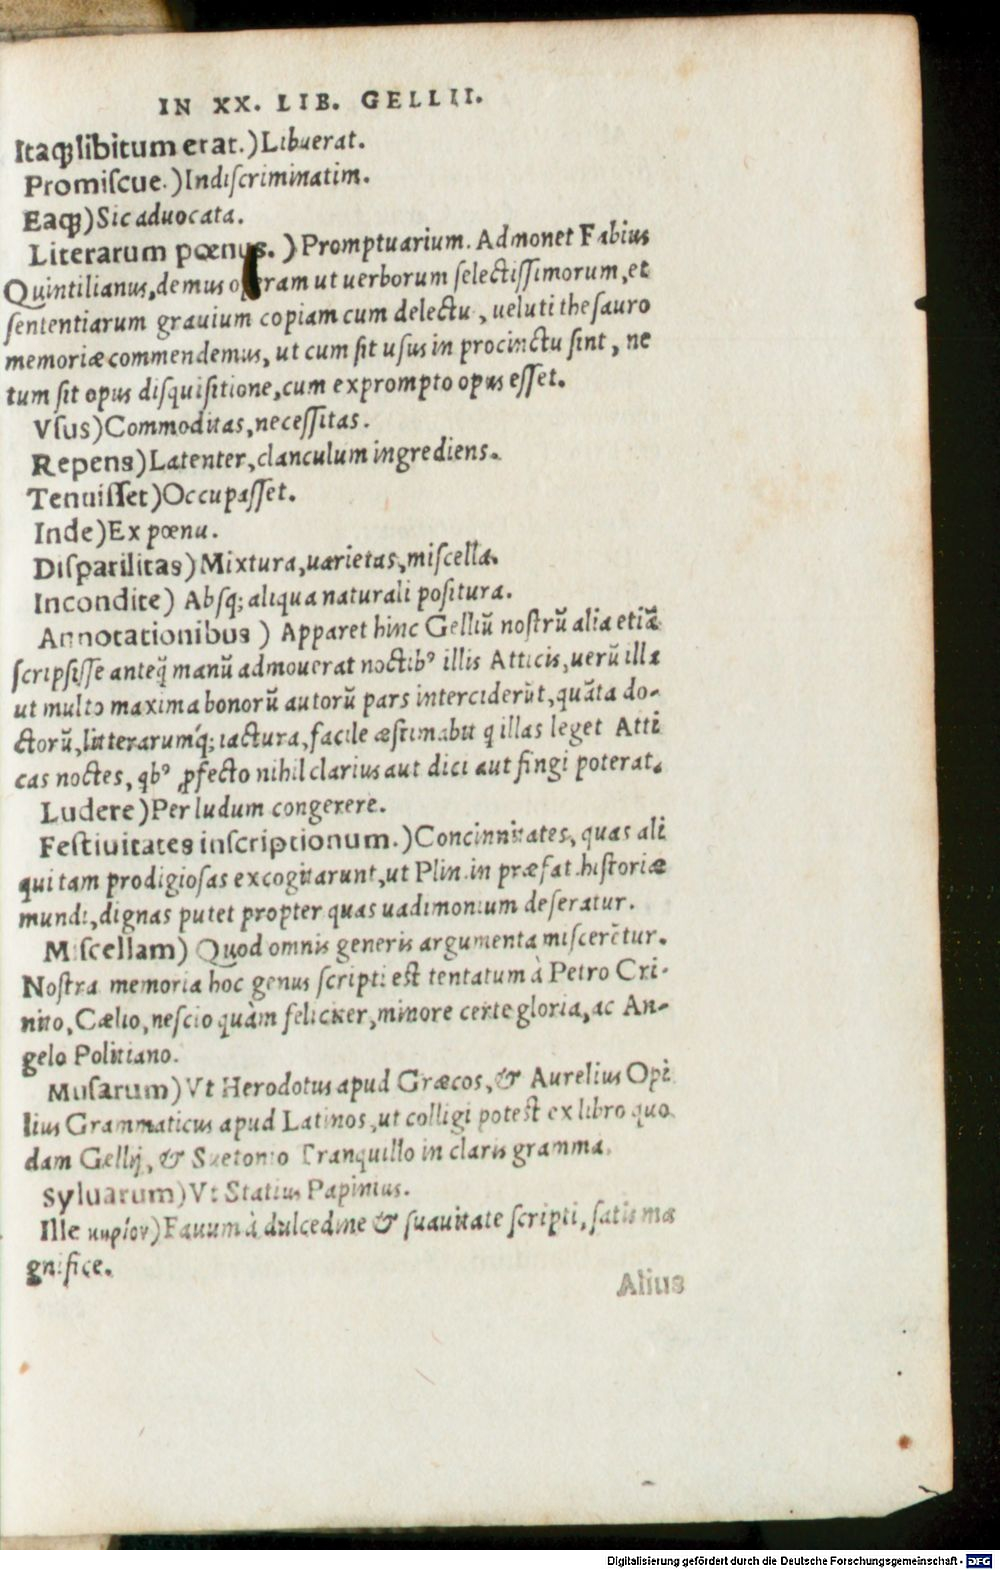 IN XX. LIB. GELLII.
Itaqꝫ libitum erat.) Libuerat.
Promiscue.) Indiscriminatim.
Eaqꝫ) Sic aduocata.
Literarum pœnus.) Promptuarium. Admonet Fabius
Quintilianus, demus operam ut uerborum selectissimorum, et
sententiarum grauium copiam cum delectu, ueluti thesauro
memoriæ commendemus, ut cum sit usus in procinctu sint, ne
tum sit opus disquisitione, cum exprompto opus esset.
Vsus) Commoditas, necessitas.
Repens) Latenter, clanculum ingrediens.
Tenuisset) Occupasset.
Inde) Ex pœnu.
Disparilitas) Mixtura, uarietas, miscella.
Incondite) Absq; aliqua naturali positura.
Annotationibus) Apparet hinc Gelliū nostrū alia etiā
scripsisse anteq̃ manū admouerat noctibꝰ illis Atticis, uerū illa
ut multo maxima bonorū autorū pars interciderūt, quāta do-
ctorū, litterarumq́; iactura, facile æstimabit q illas leget Atti
cas noctes, qbꝰ ꝓfecto nihil clarius aut dici aut fingi poterat.
Ludere) Per ludum congerere.
Festiuitates inscriptionum.) Concinnitates, quas ali
qui tam prodigiosas excogitarunt, ut Plin. in præfat. historiæ
mundi, dignas putet propter quas uadimonium deseratur.
Miscellam) Quod omnis generis argumenta misceretur.
Nostra memoria hoc genus scripti est tentatum à Petro Cri-
nito, Cælio, nescio quàm feliciter, minore certe gloria, ac An-
gelo Politiano.
Musarum) Vt Herodotus apud Græcos, & Aurelius Opi
lius Grammaticus apud Latinos, ut colligi potest ex libro quo
dam Gellij, & Suetonio Tranquillo in claris gramma.
Syluarum) Vt Statius Papinius.
Ille κηρίον) Fauum à dulcedine & suauitate scripti, satis ma
gnifice.
Alius
Digitalisierung gefördert durch die Deutsche Forschungsgemeinschaft - DFG